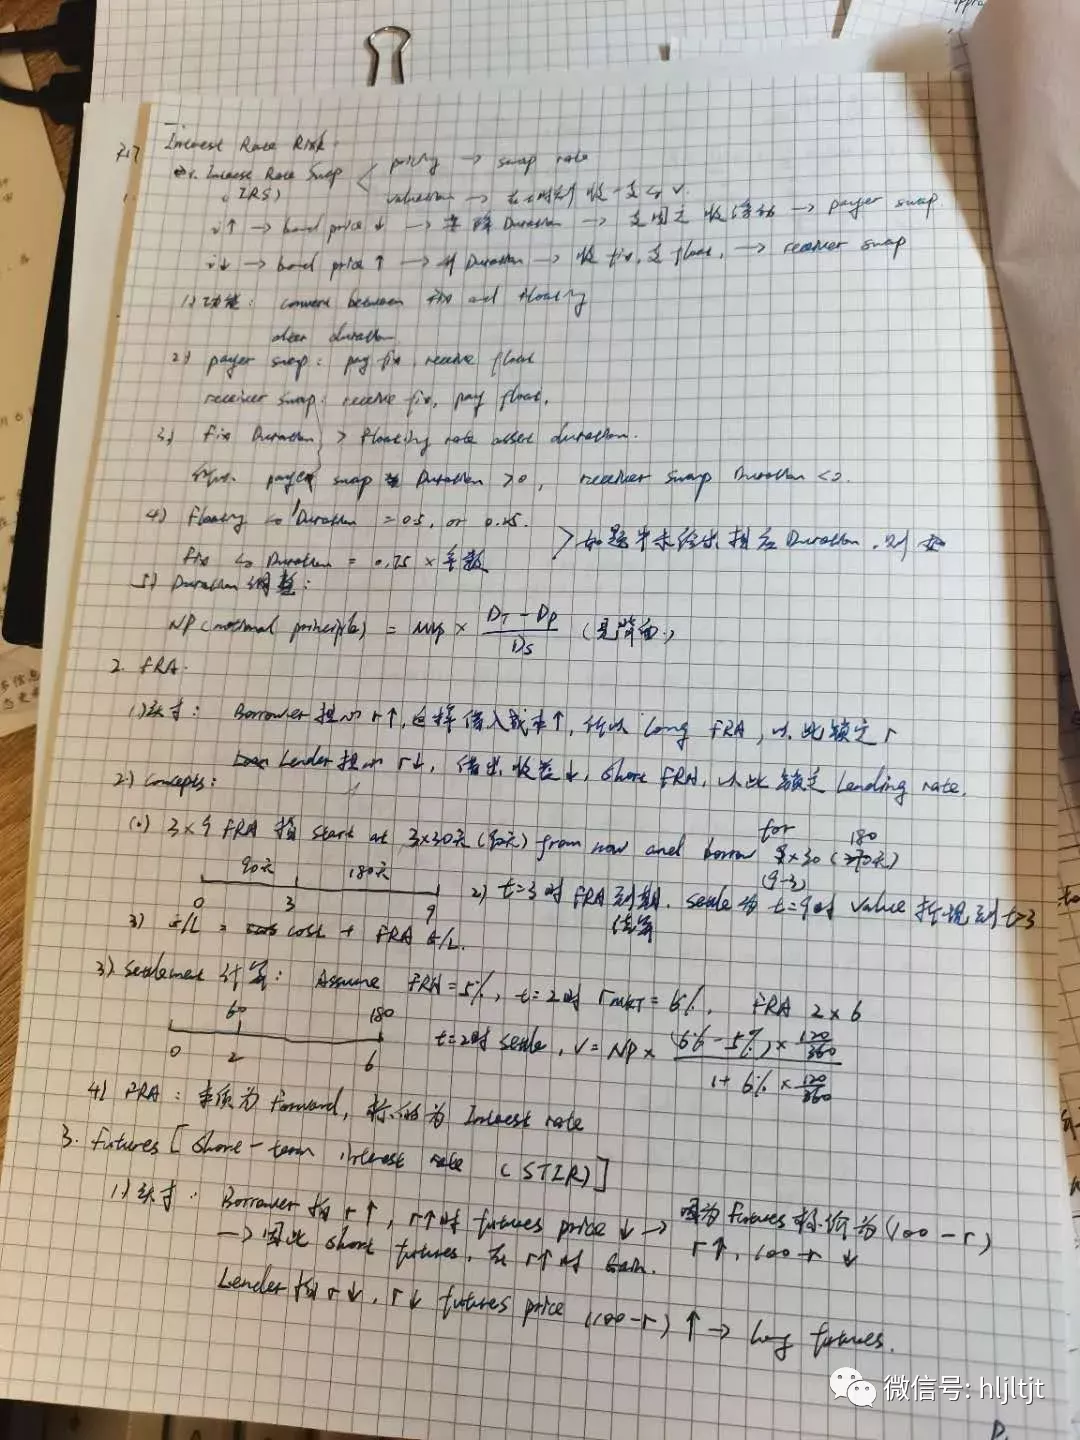 R17 Interest Rate Risk.
1. Interest Rate Swap < pricing → swap rate
(IRS) valuation → 在t时刻 收-支=V.
i↑ → bond price ↓ → 降 Duration → 支固定 收浮动 → payer swap.
i↓ → bond price ↑ → 升 Duration → 收 fix, 支 float, → receiver swap
1) 功能: convert between fix and floating
alter duration
2) payer swap: pay fix, receive float
receiver swap: receive fix, pay float.
3) Fix Duration > floating rate asset duration.
payer swap Duration >0, receiver swap Duration <0.
4) Floating Duration = 0.5, or 0.25.
Fix Duration = 0.75 × 年数 > 如题中未给出 Duration, 则
5) Duration 调整:
NP (notional principle) = MVp × (D_T - D_P)/D_S (见背面.)
2. FRA.
1) 头寸: Borrower 担心 r↑, 这样借入成本↑, 所以 Long FRA, 以此锁定 r
Lender 担心 r↓, 借出收益↓, Short FRA, 以此锁定 Lending rate.
2) Concepts:
(1) 3×9 FRA 指 start at 3×30天 (90天) from now and borrow for ×30 (180天)
(9-3)
90天 180天
0 3 9
2) t=3时 FRA 到期, settle 为 t=9时 value 折现到 t=3
结算
3) G/L = cost + FRA G/L.
3) Settlement 计算: Assume FRA=5%, t=2时 r_MKT = 6%, FRA 2×6
60 180
0 2 6
t=2时 settle, V = NP × (6%-5%) × 120/360
1 + 6% × 120/360
4) FRA: 本质为 Forward, 标的为 Interest rate
3. Futures [Short-term interest rate (STIR)]
1) 头寸: Borrower 怕 r↑, r↑时 futures price ↓ → 因为 Futures 标价为 (100-r)
→ 因此 short futures, 在 r↑时 Gain. r↑, 100-r ↓
Lender 怕 r↓, r↓ futures price (100-r) ↑ → long futures.
微信号: hljltjt